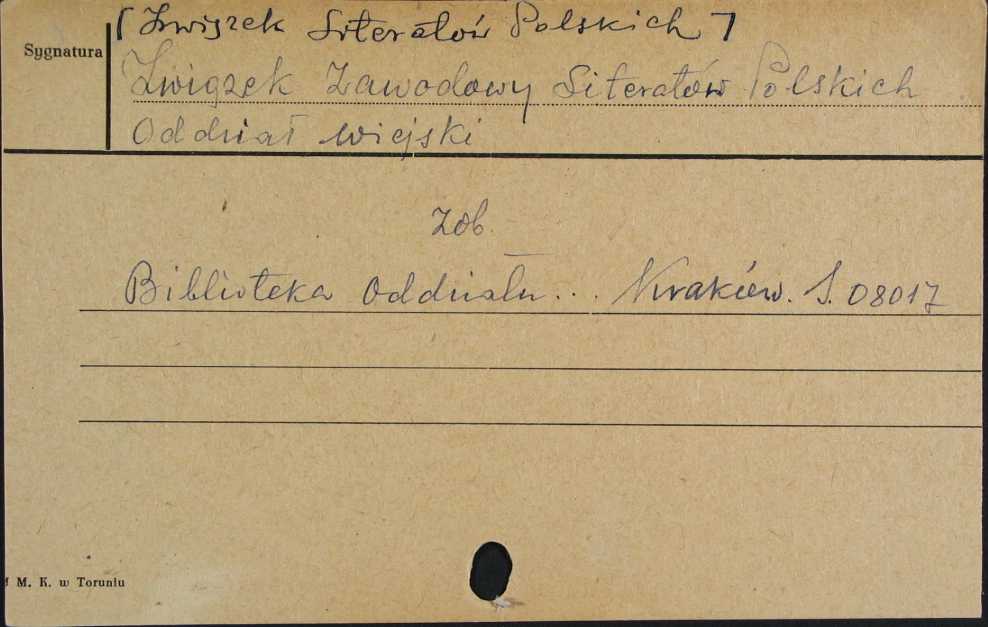 [Związek Literatów Polskich]
Sygnatura
Związek Zawodowy Literatów Polskich
Oddział Wiejski
zob.
Biblioteka Oddziału... Kraków. S. 08017
M. K. w Toruniu